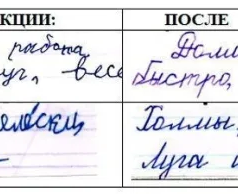 КЦИИ: ПОСЛЕ
работа,
уг, весе
Доли
быстро,
Холмы,
Луга